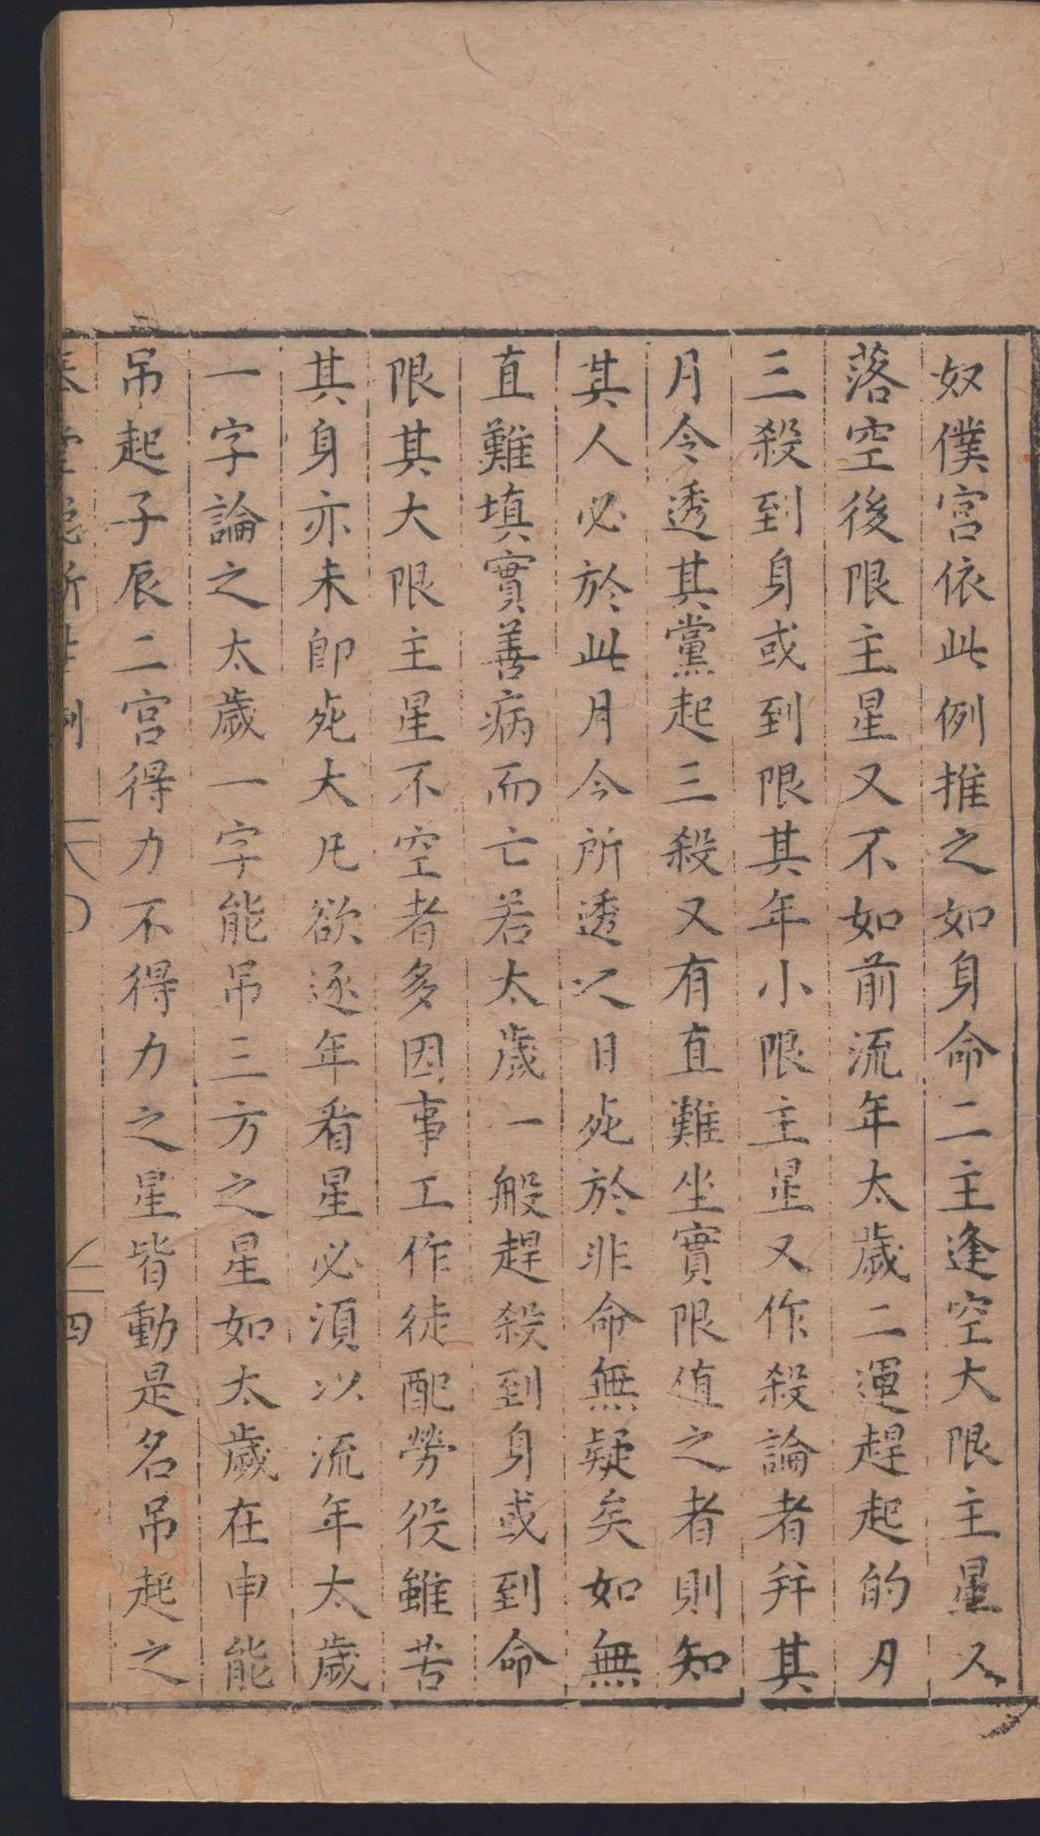 奴僕宮依此例推之如身命二主逢空大限主星又
落空後限主星又不如前流年太歲二運趕起的夕
三殺到身或到限其年小限主星又作殺論者并其
月令透其黨起三殺又有直難坐實限值之者則知
其人必於此月令所透之日死於非命無疑矣如無
直難填實善病而亡若太歲一般趕殺到身或到命
限其大限主星不空者多因事工作徒配勞役雖苦
其身亦未即死大凡欲逐年看星必須以流年太歲
一字論之太歲一字能吊三方之星如太歲在申能
吊起子辰二宮得力不得力之星皆動是名吊起之
四